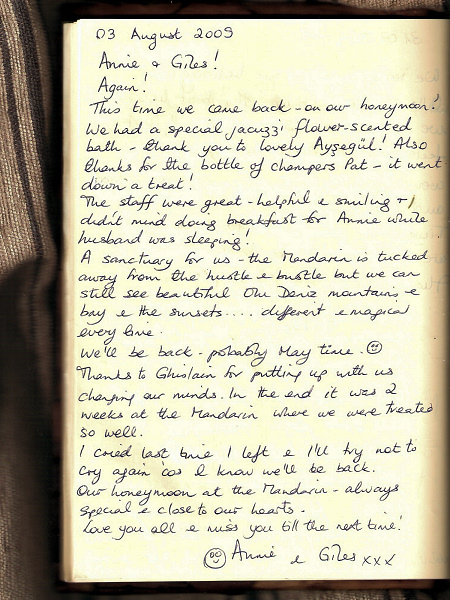 03 August 2009
Annie & Giles!
Again!
This time we came back - on our honeymoon!
We had a special jacuzzi flower-scented
bath - thank you to lovely Ayşegül! Also
thanks for the bottle of champers Pat - it went
down a treat!
The staff were great - helpful & smiling &
didn't mind doing breakfast for Annie while
husband was sleeping!
A sanctuary for us - the Mandarin is tucked
away from the hustle & bustle but we can
still see beautiful Olu Deniz mountains &
bay & the sunsets.... different & magical
every time.
We'll be back - probably May time. ☺
Thanks to Ghislain for putting up with us
changing our minds. In the end it was 2
weeks at the Mandarin where we were treated
so well.
I cried last time I left & I'll try not to
cry again 'cos I know we'll be back.
Our honeymoon at the Mandarin - always
special & close to our hearts.
Love you all & miss you till the next time!
☺ Annie & Giles xxx